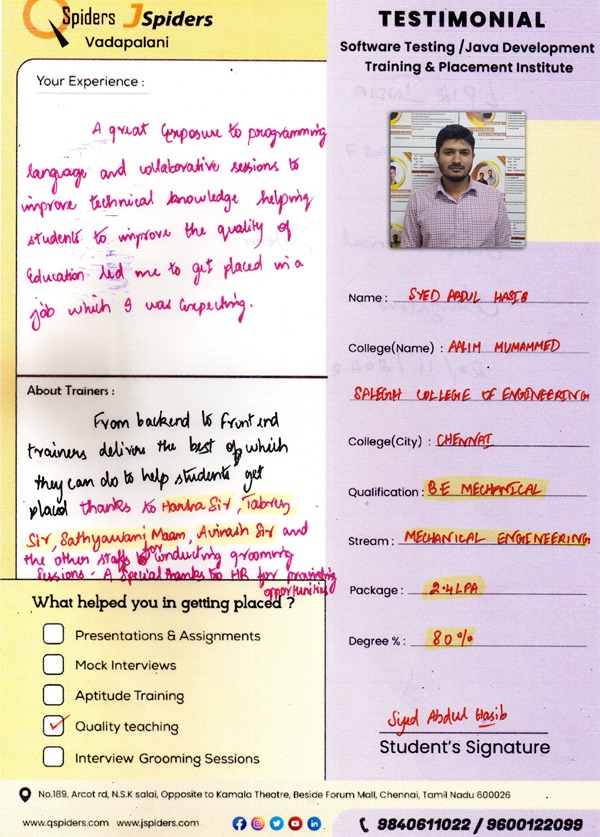 QSpiders JSpiders
Vadapalani
Your Experience :
A great Exposure to programming
language and collaborative sessions to
improve technical knowledge helping
students to improve the quality of
Education led me to get placed in a
job which I was Expecting.
About Trainers :
From backend to front end
trainers delivers the best of which
they can do to help students get
placed thanks to Harsha Sir, Tabrez
Sir, Sathyawani Maam, Avinash Sir and
the other staffs for conducting grooming
Sessions - A Special thanks to HR for providing
opportunities
What helped you in getting placed ?
Presentations & Assignments
Mock Interviews
Aptitude Training
Quality teaching
Interview Grooming Sessions
TESTIMONIAL
Software Testing /Java Development
Training & Placement Institute
Name : SYED ABDUL HASIB
College(Name) : AALIM MUHAMMED
SALEGH COLLEGE OF ENGINEERING
College(City) : CHENNAI
Qualification : BE MECHANICAL
Stream : MECHANICAL ENGINEERING
Package : 2.4LPA
Degree % : 80%
Syed Abdul Hasib
Student's Signature
No.189, Arcot rd, N.S.K salai, Opposite to Kamala Theatre, Beside Forum Mall, Chennai, Tamil Nadu 600026
www.qspiders.com www.jspiders.com
9840611022 / 9600122099